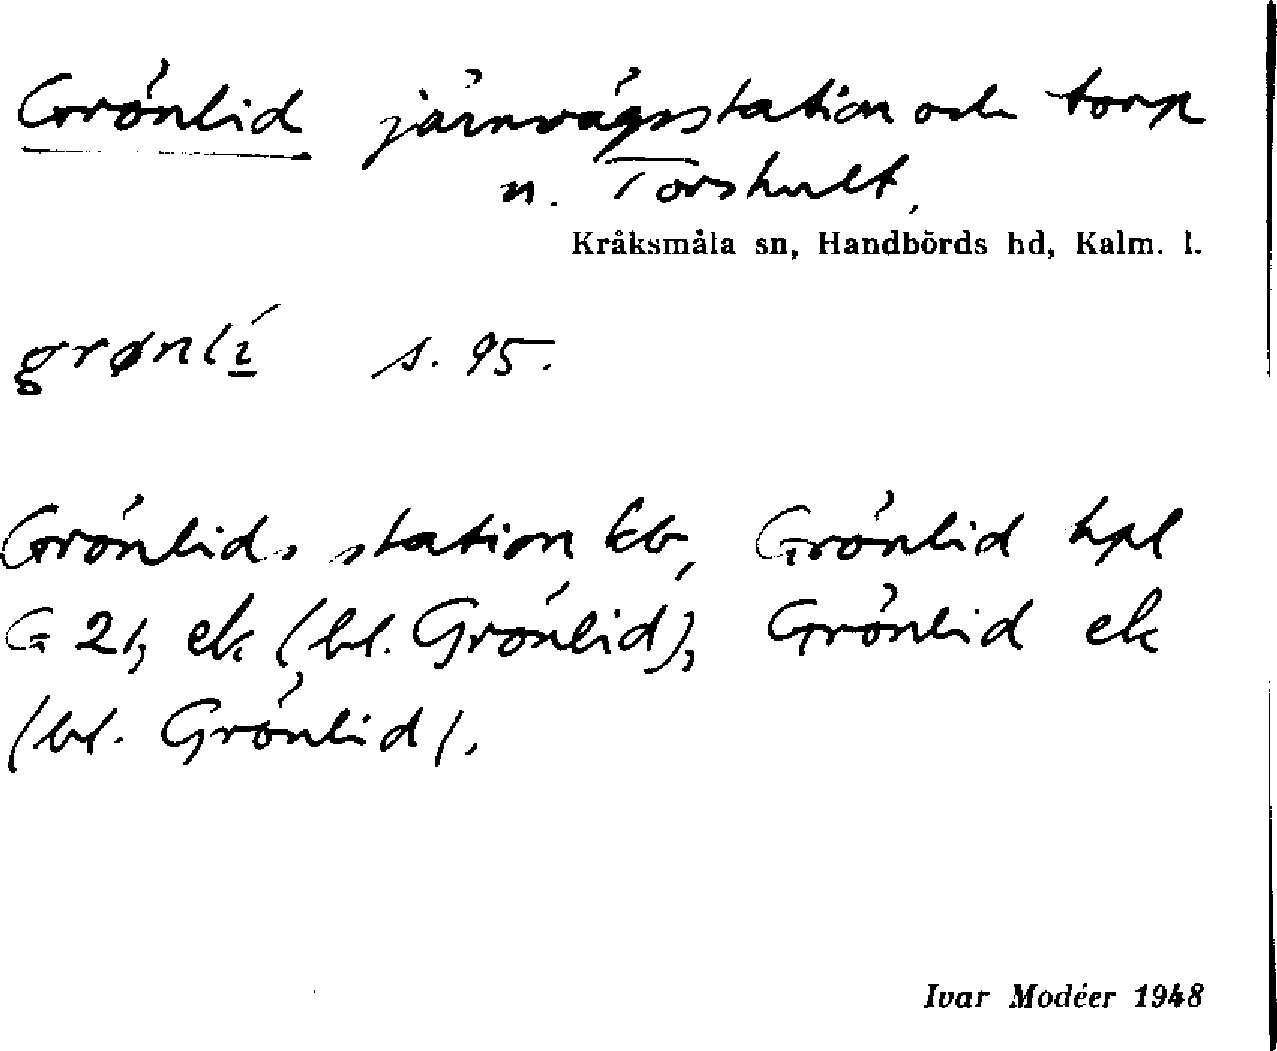 Grönlid järnvägsstation och torp
n. Torshult,
Kråksmåla sn, Handbörds hd, Kalm. l.
grønlí s. 95.
Grönlids station kb, Grönlid hpl
G 21, ek (bl. Grönlid), Grönlid ek
(bl. Grönlid).
Ivar Modéer 1948